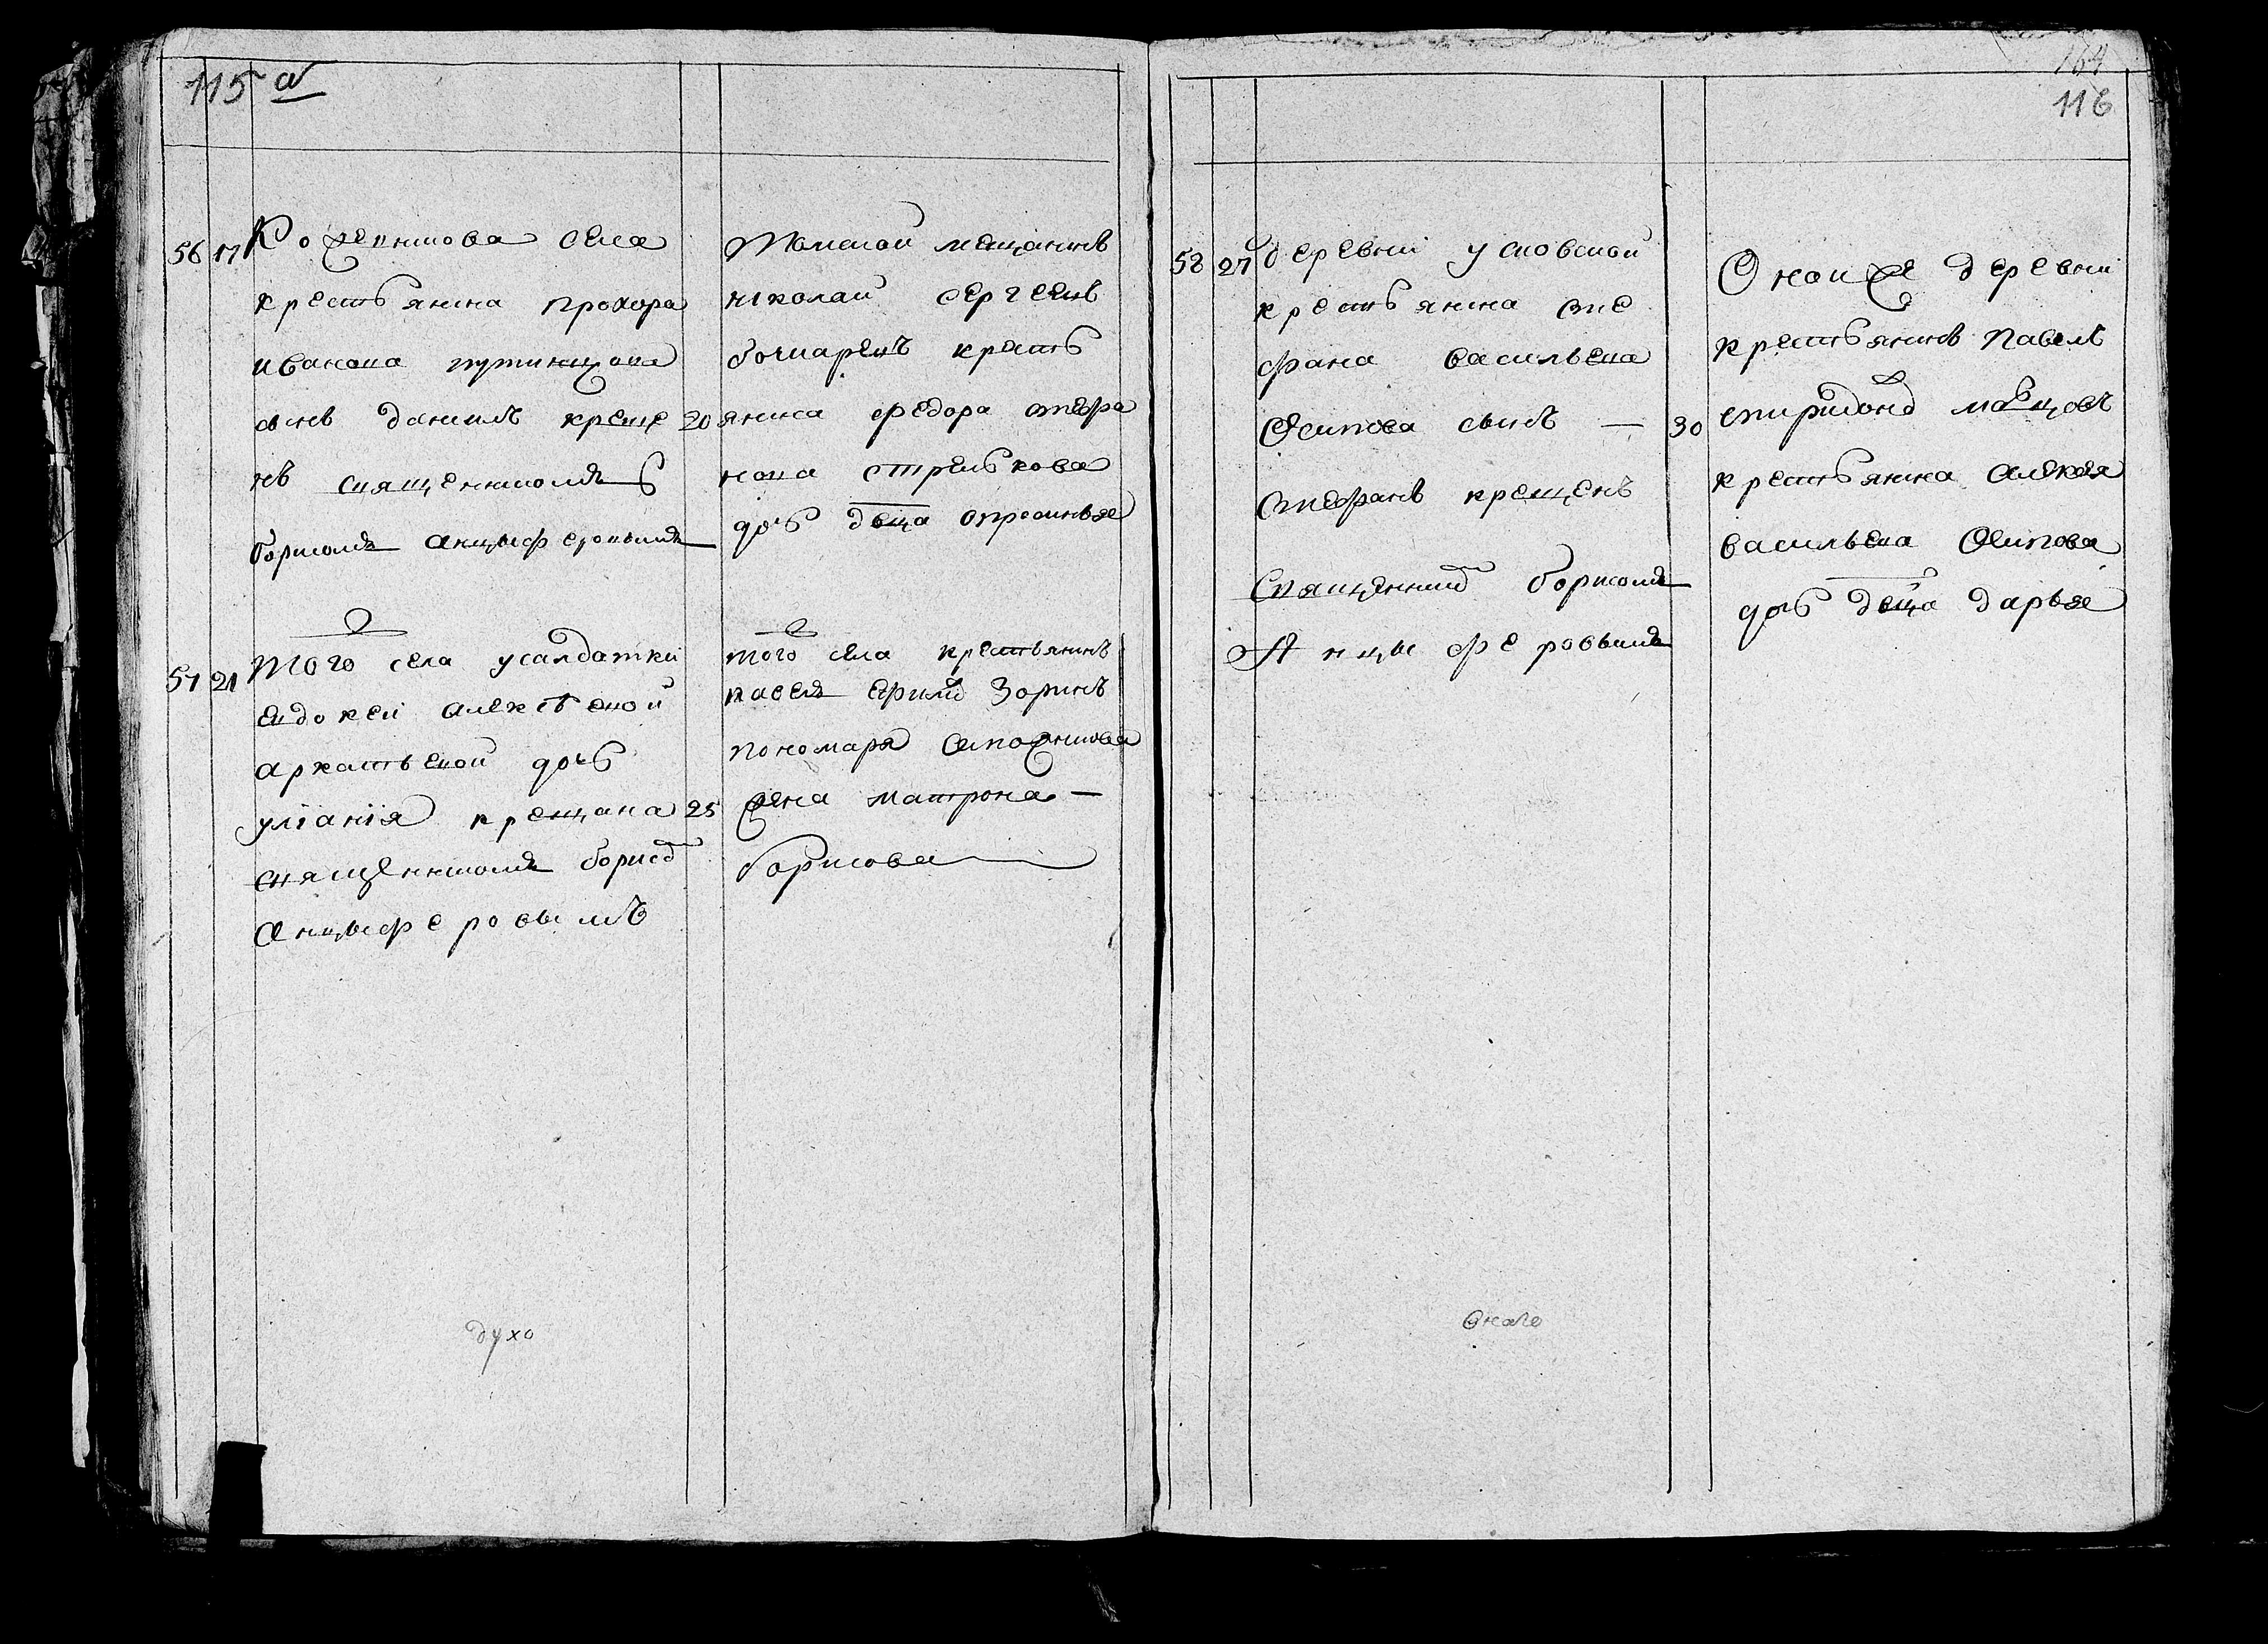 115 а
56 17 Кожевникова села
крестьянина прохора
иванова путинцова
сынъ данилъ креще
нъ священникомъ
борисомъ анцыферовымъ
20
Томской мещанинъ
николаи сергеевъ
бочкаревъ кресть
янина федора стефа
нова стрелькова
дочь девица опросинья
57 21 Того села у салдатки
евдокеи алексѣевой
аркатьевой дочь
улианiя крещана
священникомъ борисо
анцыферовымъ
25
того села крестьянинъ
павелъ ефимо зоринъ
пономаря сапожникова
жена матрона —
борисова
духо
164
116
58 27 деревни усковской
крестьянина сте
фана васильева
Осипова сынъ —
стефанъ крещенъ
Священнико борисомъ
Анцыферовымъ
30
Оной же деревни
крестьянинъ павелъ
спиридоно мальцовъ
крестьянина алексея
васильева Осипова
дочь девица дарья
Оного